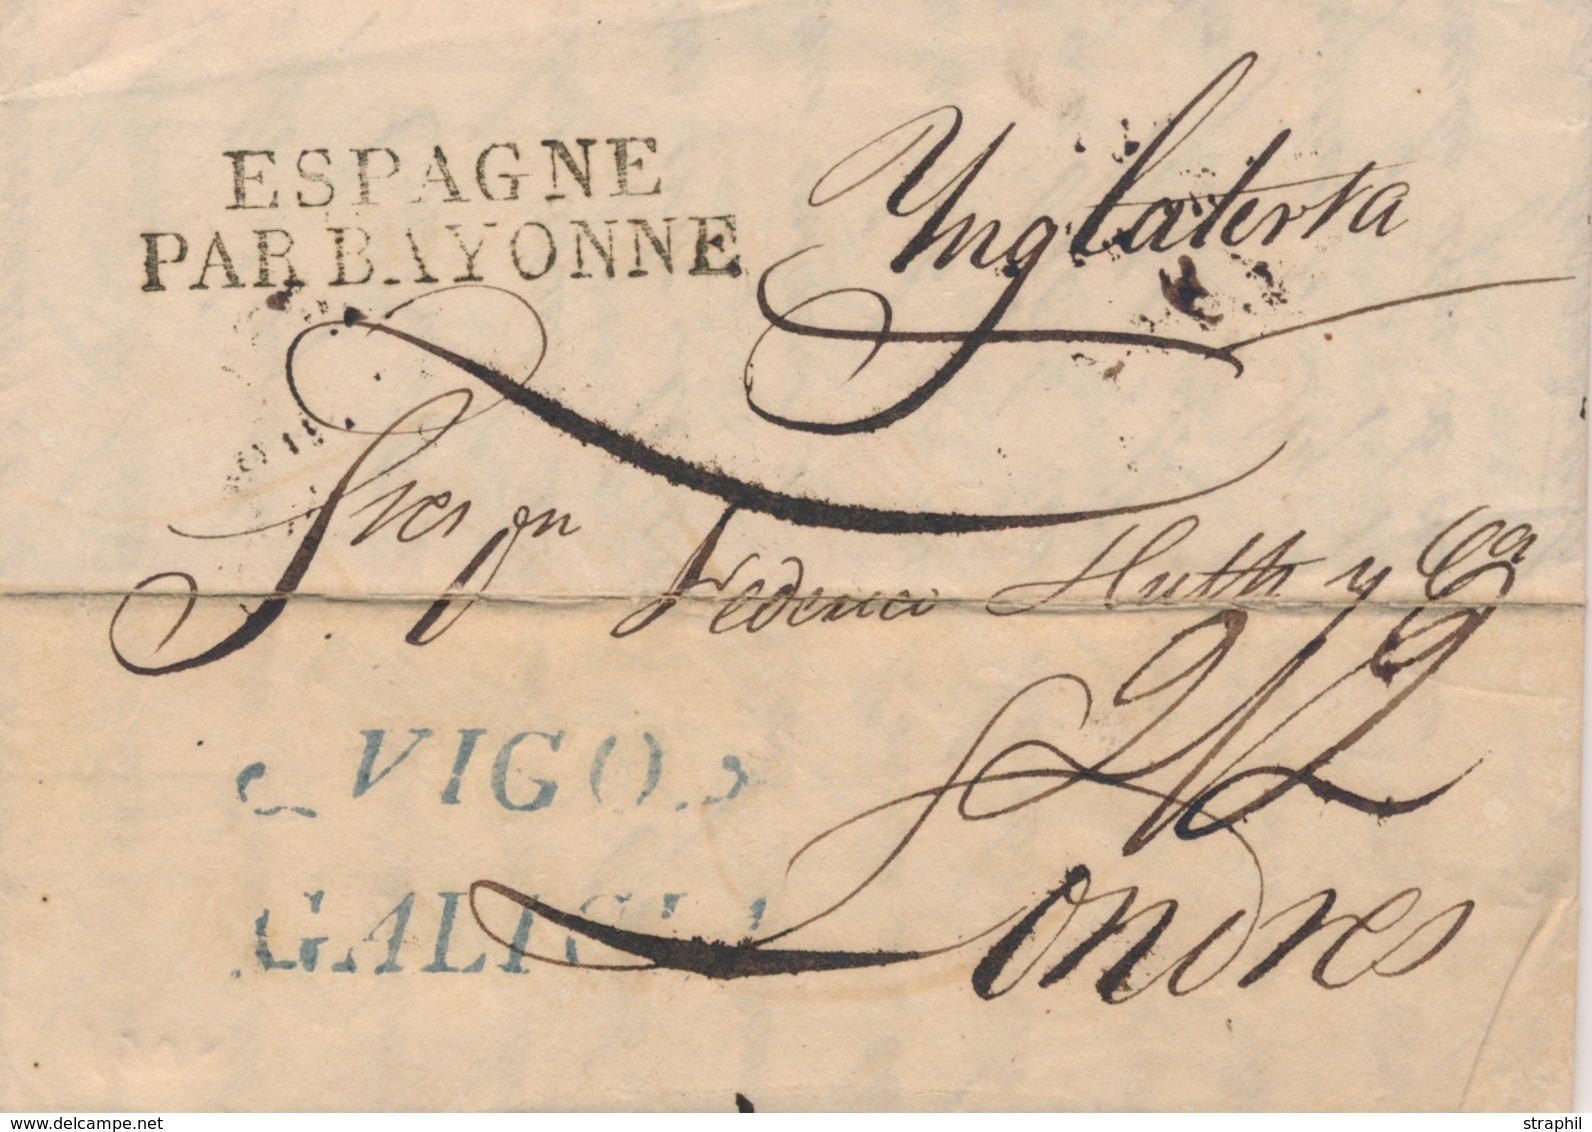 ESPAGNE
PAR BAYONNE
Ynglaterra
Sres Dn Federico Huth y Ca
2/2
VIGO
GALICIA
Londres
© www.delcampe.net
straphil